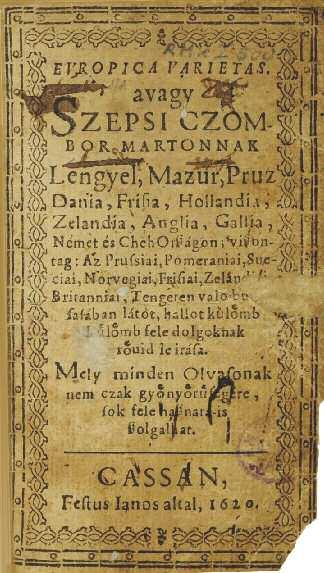 EVROPICA VARIETAS.
avagy
SZEPSI CZOM-
BOR MARTONNAK
Lengyel, Mazur, Pruz
Dania, Frisia, Hollandia,
Zelandia, Anglia, Gallia,
Német és Cheh Orságon; viſzon-
tag: Az Pruſsiai, Pomeraniai, Sue-
ciai, Norvegiai, Friſiai,
Britanniai, Tengeren valo bu
ſaſában látót, hallot külömb
külömb fele dolgoknak
rövid le iráſa.
Mely minden Olvaſonak
nem czak gyönyörüſégére,
ſok fele haſznára is
ſzolgalhat.
CASSÁN,
Feſtus Ianos altal, 1620.